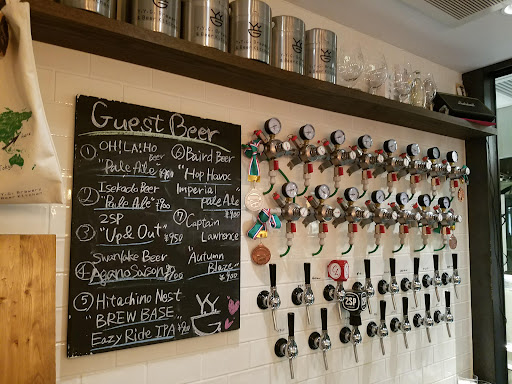 Guest Beer
① OH!LA!HO Beer
"Pale Ale"
② Isekado Beer
"Pale Ale" ¥900
③ 2SP
"Up & Out" ¥950
④ Swanlake Beer
Agano Saison
⑤ Hitachino Nest
"BREW BASE
Eazy Ride IPA ¥900
⑥ Baird Beer
"Hop Havoc
Imperial
Pale Ale"
⑦ Captain
Lawrence
"Autumn
Blaze"
2SP